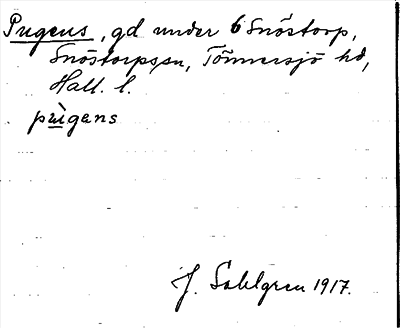 Pugens, gd under 6 Snöstorp,
Snöstorps sn, Tönnersjö hd,
Hall. l.
pùgens
J. Sahlgren 1917.